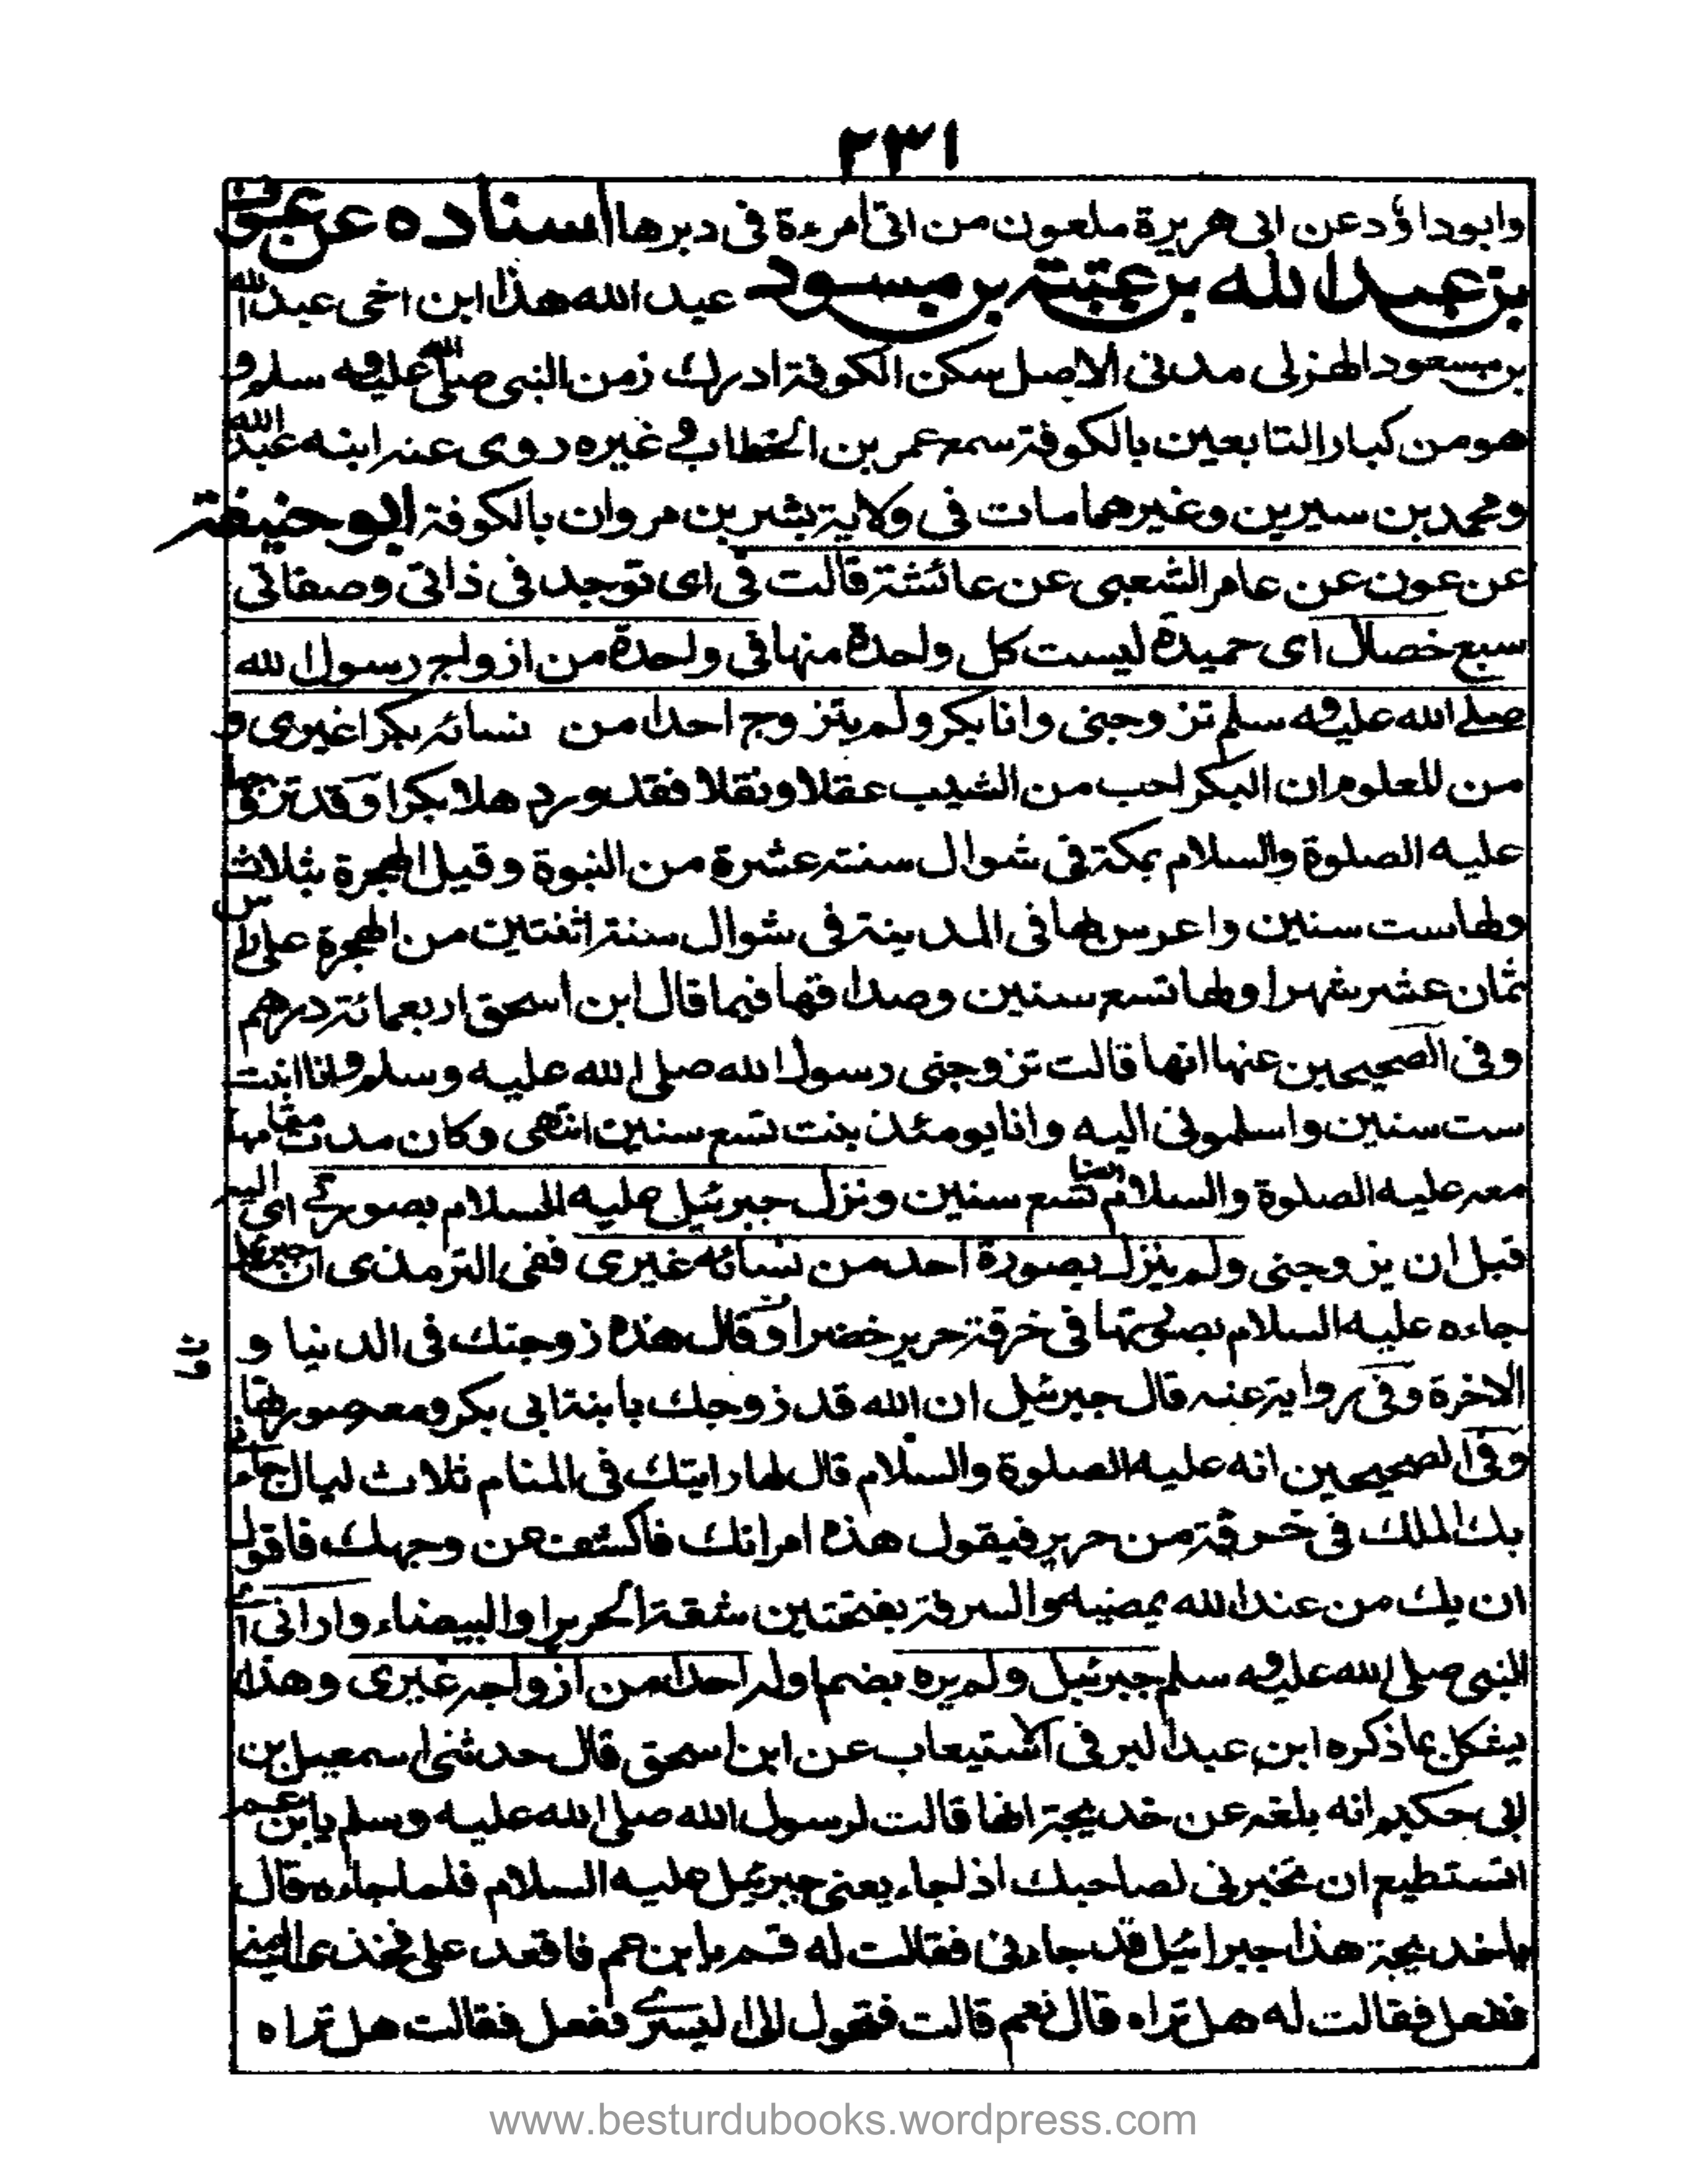 ٢٣١
وابوداؤد عن ابی هريرة ملعون من اتی امرءة فی دبرها اسناده عن عون
بن عبد الله بن عتبة بن مسعود عبد الله هذا ابن اخی عبد الله
بن مسعود الهزلی مدنی الاصل سکن الکوفة ادرك زمن النبی صلی الله عليه و سلم و
هو من کبار التابعين بالکوفة سمع عمر بن الخطاب و غيره روی عنه ابنه عبد الله
ومحمد بن سيرين وغيرهما مات فی ولاية بشر بن مروان بالکوفة ابو حنيفة
عن عون عن عامر الشعبی عن عائشة قالت فی ای توجد فی ذاتی وصفاتی
سبع خصال ای حميدة ليست کل واحدة منها فی واحدة من ازواج رسول الله
صلے الله عليه و سلم تزوجنی وانا بکر ولم يتزوج احدا من نسائه بکرا غيری و
من المعلوم ان البکر احب من الثيب عقلا ونقلا فقد ورد هلا بکرا وقد تزوجها
عليه الصلوة والسلام بمکة فی شوال سنة عشرة من النبوة وقيل الهجرة بثلاث
ولها ست سنين واعرس بها فی المدينة فی شوال سنة اثنتين من الهجرة علی راس
ثمان عشر شهرا ولها تسع سنين وصداقها فيما قال ابن اسحق اربعمائة درهم
وفی الصحيحين عنها انها قالت تزوجنی رسول الله صلی الله عليه وسلم وانا ابنت
ست سنين واسلمونی اليه وانا يومئذ بنت تسع سنين انتهی وکان مدت مقامها
معه عليه الصلوة والسلام ايضا تسع سنين ونزل جبرئيل عليه السلام بصورتے ای اليه
قبل ان يزوجنی ولم ينزل بصورة احد من نسائه غيری ففی الترمذی ان جبرئيل
جاءه عليه السلام بصورتها فی خرقة حرير خضراء وقال هذه زوجتك فی الدنيا و
الاخرة وفی رواية عنه قال جبرئيل ان الله قد زوجك بابنة ابی بکر ومعه صورتها
وفی الصحيحين انه عليه الصلوة والسلام قال لها رايتك فی المنام ثلاث ليال جاءنی
بك الملك فی خرقة من حرير فيقول هذه امراتك فاکشف عن وجهك فاقول
ان يك من عند الله يمضيه والسرقة بفتحتين شقة الحرير او البيضاء وارانی ای
النبی صلی الله عليه و سلم جبرئيل ولم يره بضم اوله احدا من ازواجه غيری وهذا
يشکل بما ذکره ابن عبد البر فی الاستيعاب عن ابن اسحق قال حدثنی اسمعيل بن
ابی حکيم انه بلغه عن خديجة انها قالت لرسول الله صلی الله عليه وسلم يا بن عم
اتستطيع ان تخبرنی لصاحبك اذا جاء يعنی جبرئيل عليه السلام فلما جاءه قال
يا خديجة هذا جبرائيل قد جاءنی فقالت له قم يا بن عم فاقعد علی فخذی اليمنی
ففعل فقالت له هل تراه قال نعم قالت فتحول الی اليسرے ففعل فقالت هل تراه
www.besturdubooks.wordpress.com